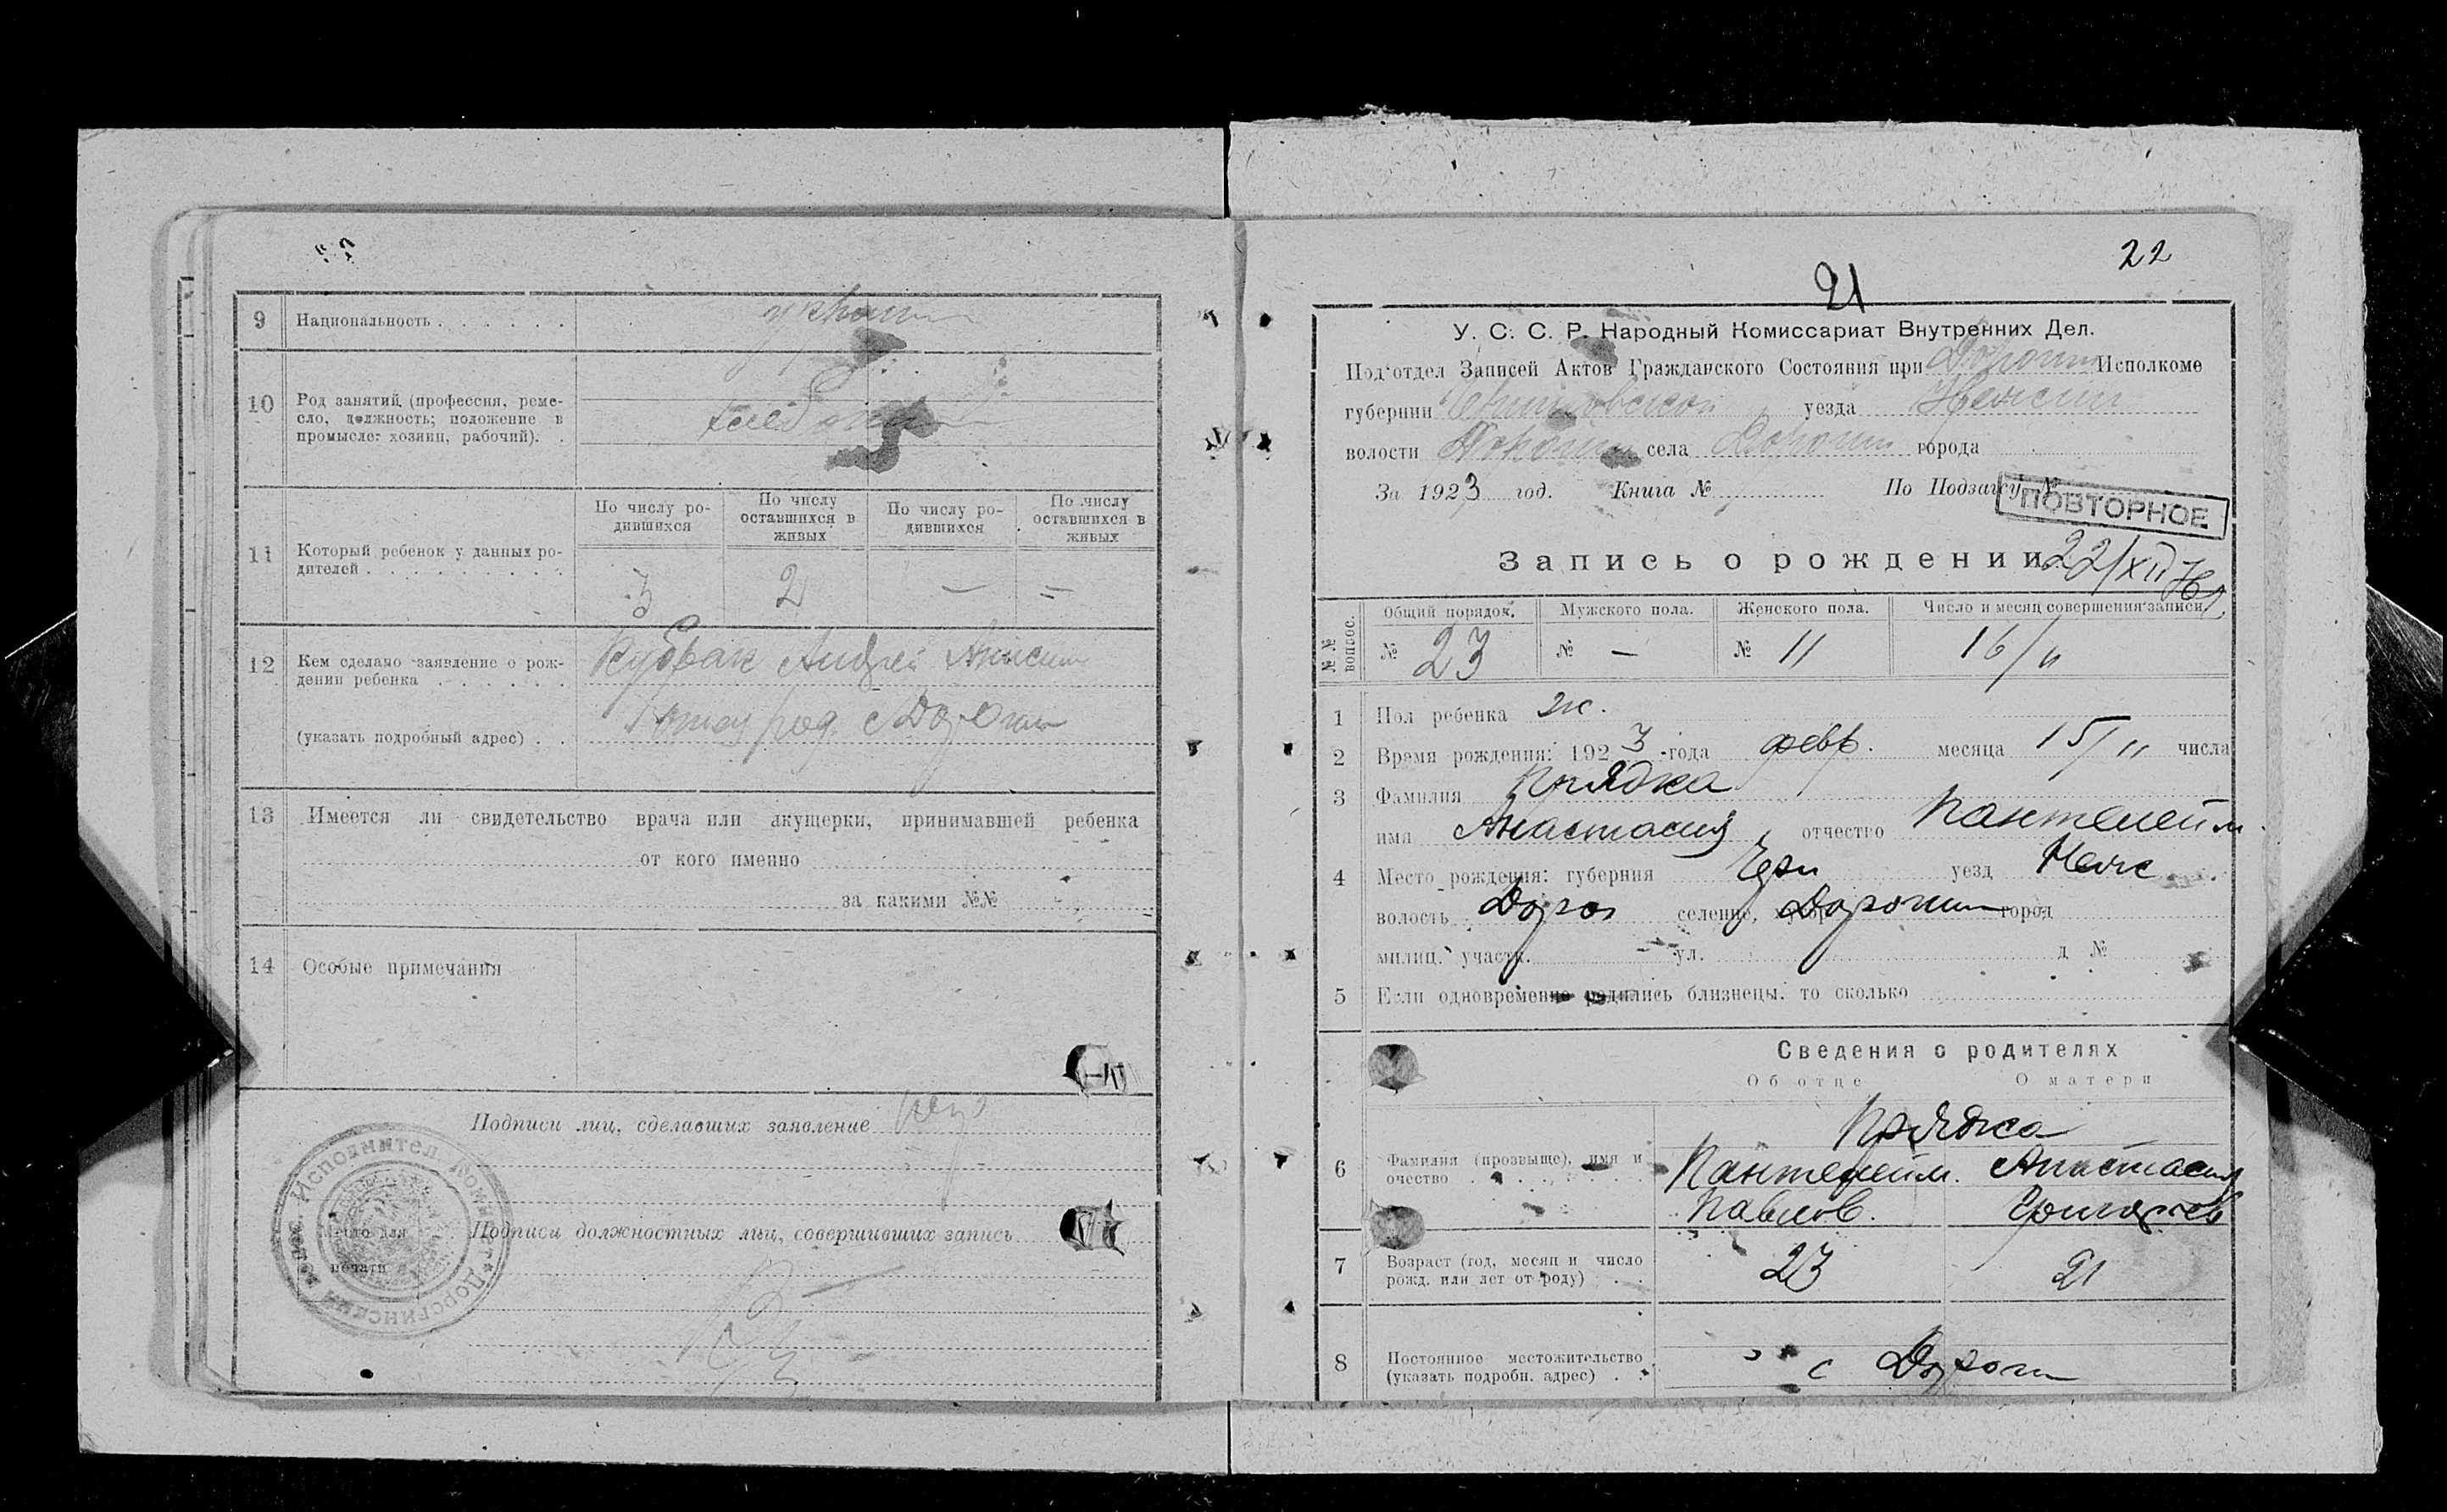 9 Национальность
10 Род занятий (профессия, реме-
сло, должность; положение в
промысле: хозяин, рабочий).
11 Который ребенок у данных ро-
дителей
По числу ро-
дившихся
По числу
оставшихся в
живых
По числу ро-
дившихся
По числу
оставшихся в
живых
3 2 — =
12 Кем сделано заявление о рож-
дении ребенка
Андрей
(указать подробный адрес)
13 Имеется ли свидетельство врача или акушерки, принимавшей ребенка
от кого именно
за какими №№
14 Особые примечания
Подписи лиц, сделавших заявление
Подписи должностных лиц, совершивших запись
Место для
печати
22
21
У. С. С. Р. Народный Комиссариат Внутренних Дел.
Под'отдел Записей Актов Гражданского Состояния при Исполкоме
губернии Черниговской уезда Нежин
волости села города
За 1923 год. Книга № По Подзагсу №
ПОВТОРНОЕ
Запись о рождении
22/XII
№№ вопрос.
Общий порядок. Мужского пола. Женского пола. Число и месяц совершения записи
№ 23 № — № 11 16/II
1 Пол ребенка ж.
2 Время рождения: 1923 -года февр. месяца 15/II числа
3 Фамилия Прядка
имя Анастасия, отчество Пантелейм.
4 Место рождения: губерния Чрн уезд Неж
волость Дорог селение, хутор Дорогин город
милиц. участк. ул. д №
5 Если одновременно родились близнецы, то сколько
Сведения о родителях
Об отце О матери
6 Фамилия (прозвыще), имя и
очество
Прядка
Пантелейм. Анастасия
Павлов. Григорьев
7 Возраст (год, месяц и число
рожд. или лет от роду)
23 21
8 Постоянное местожительство
(указать подробн. адрес)
с Дорогин